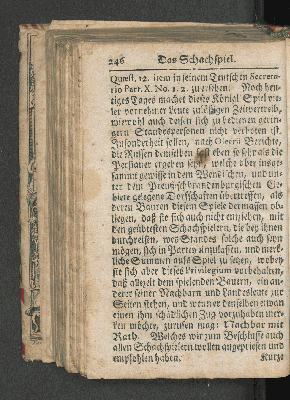 246 Das Schachspiel.
Quæst. 12. item in seinem Teutschen Secreta-
rio Part. X. No. 1. 2. zu ersehen. Noch heu-
tiges Tages machet dieses Königl. Spiel vie-
ler vornehmer Leute zulässigen Zeitvertreib,
wiewohl auch dessen sich zu bedienen gerin-
gern Standespersonen nicht verboten ist.
Insonderheit sollen, nach Olearii Berichte,
die Russen demselben fast eben so sehr als die
Persianer ergeben seyn, welche aber insge-
sammt gewisse in dem Wendischen, und un-
ter dem Preuß-brandenburgischen Ge-
biete gelegene Dorfschaften übertreffen, als
deren Bauren diesem Spiele dermassen ob-
liegen, daß sie sich auch nicht entziehen, mit
den geübtesten Schachspielern, die bey ihnen
durchreisen, wes Standes solche auch seyn
mögen, sich in Partey einzulassen, und merk-
liche Summen aufs Spiel zu setzen, wobey
sie sich aber dieses Privilegium vorbehalten,
daß allezeit dem spielenden Bauren, ein an-
derer seiner Nachbarn und Landesleute zur
Seiten stehen, und wenn er denselben etwan
einen ihm schädlichen Zug vorzuhaben mer-
ken möchte, zurufen mag: Nachbar mit
Rath. Welches wir zum Beschlusse auch
allen Schachspielern wollen angepriesen und
empfohlen haben. Kurze